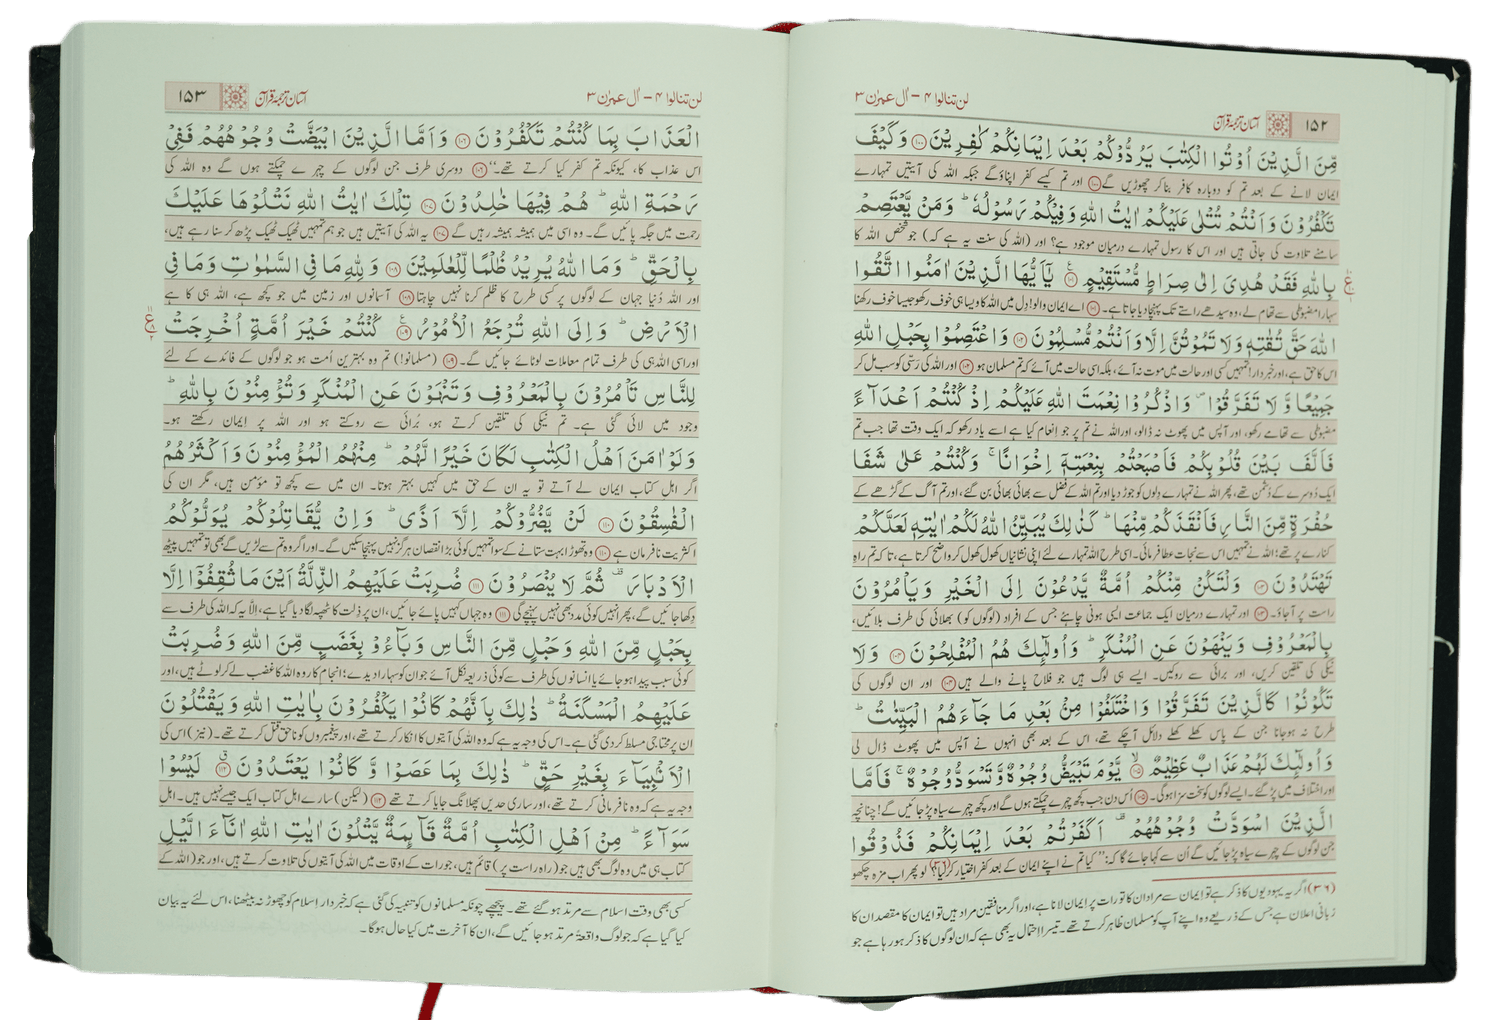 ۱۵۲ آسان ترجمۂ قرآن لن تنالوا ۴ – اٰل عمرٰن ۳
مِّنَ الَّذِيْنَ اُوْتُوا الْكِتٰبَ يَرُدُّوْكُمْ بَعْدَ اِيْمَانِكُمْ كٰفِرِيْنَ ۝۱۰۰ وَكَيْفَ
ایمان لانے کے بعد تم کو دوبارہ کافر بنا کر چھوڑیں گے ﴿۱۰۰﴾ اور تم کیسے کفر اپناؤ گے جبکہ اللہ کی آیتیں تمہارے
تَكْفُرُوْنَ وَاَنْتُمْ تُتْلٰى عَلَيْكُمْ اٰيٰتُ اللّٰهِ وَفِيْكُمْ رَسُوْلُهٗ ؕ وَمَنْ يَّعْتَصِمْ
سامنے تلاوت کی جاتی ہیں اور اس کا رسول تمہارے درمیان موجود ہے؟ اور (اللہ کی سنت یہ ہے کہ) جو شخص اللہ کا
بِاللّٰهِ فَقَدْ هُدِيَ اِلٰى صِرَاطٍ مُّسْتَقِيْمٍ ۝۱۰۱ يٰۤاَيُّهَا الَّذِيْنَ اٰمَنُوا اتَّقُوا
سہارا مضبوطی سے تھام لے، وہ سیدھے راستے تک پہنچا دیا جاتا ہے۔ ﴿۱۰۱﴾ اے ایمان والو! دل میں اللہ کا ویسا ہی خوف رکھو جیسا خوف رکھنا
اللّٰهَ حَقَّ تُقٰتِهٖ وَلَا تَمُوْتُنَّ اِلَّا وَاَنْتُمْ مُّسْلِمُوْنَ ۝۱۰۲ وَاعْتَصِمُوْا بِحَبْلِ اللّٰهِ
اس کا حق ہے، اور خبردار! تمہیں کسی اور حالت میں موت نہ آئے، بلکہ اسی حالت میں آئے کہ تم مسلمان ہو ﴿۱۰۲﴾ اور اللہ کی رسّی کو سب مل کر
جَمِيْعًا وَّلَا تَفَرَّقُوْا ۪ وَاذْكُرُوْا نِعْمَتَ اللّٰهِ عَلَيْكُمْ اِذْ كُنْتُمْ اَعْدَآءً
مضبوطی سے تھامے رکھو، اور آپس میں پھوٹ نہ ڈالو، اور اللہ نے تم پر جو انعام کیا ہے اسے یاد رکھو کہ ایک وقت تھا جب تم
فَاَلَّفَ بَيْنَ قُلُوْبِكُمْ فَاَصْبَحْتُمْ بِنِعْمَتِهٖۤ اِخْوَانًا ۚ وَكُنْتُمْ عَلٰى شَفَا
ایک دُوسرے کے دُشمن تھے، پھر اللہ نے تمہارے دِلوں کو جوڑ دیا اور تم اللہ کے فضل سے بھائی بھائی بن گئے، اور تم آگ کے گڑھے کے
حُفْرَةٍ مِّنَ النَّارِ فَاَنْقَذَكُمْ مِّنْهَا ؕ كَذٰلِكَ يُبَيِّنُ اللّٰهُ لَكُمْ اٰيٰتِهٖ لَعَلَّكُمْ
کنارے پر تھے؛ اللہ نے تمہیں اس سے نجات عطا فرمائی۔ اسی طرح اللہ تمہارے لئے اپنی نشانیاں کھول کھول کر واضح کرتا ہے، تاکہ تم راہِ
تَهْتَدُوْنَ ۝۱۰۳ وَلْتَكُنْ مِّنْكُمْ اُمَّةٌ يَّدْعُوْنَ اِلَى الْخَيْرِ وَيَاْمُرُوْنَ
راست پر آجاؤ۔ ﴿۱۰۳﴾ اور تمہارے درمیان ایک جماعت ایسی ہونی چاہئے جس کے افراد (لوگوں کو) بھلائی کی طرف بلائیں،
بِالْمَعْرُوْفِ وَيَنْهَوْنَ عَنِ الْمُنْكَرِ ؕ وَاُولٰٓئِكَ هُمُ الْمُفْلِحُوْنَ ۝۱۰۴ وَلَا
نیکی کی تلقین کریں، اور برائی سے روکیں۔ ایسے ہی لوگ ہیں جو فلاح پانے والے ہیں ﴿۱۰۴﴾ اور ان لوگوں کی
تَكُوْنُوْا كَالَّذِيْنَ تَفَرَّقُوْا وَاخْتَلَفُوْا مِنْۢ بَعْدِ مَا جَآءَهُمُ الْبَيِّنٰتُ ؕ
طرح نہ ہوجانا جن کے پاس کھلے کھلے دلائل آچکے تھے، اس کے بعد بھی انہوں نے آپس میں پھوٹ ڈال لی
وَاُولٰٓئِكَ لَهُمْ عَذَابٌ عَظِيْمٌ ۝۱۰۵ۙ يَّوْمَ تَبْيَضُّ وُجُوْهٌ وَّتَسْوَدُّ وُجُوْهٌ ۚ فَاَمَّا
اور اختلاف میں پڑ گئے۔ ایسے لوگوں کو سخت سزا ہوگی۔ ﴿۱۰۵﴾ اُس دن جب کچھ چہرے چمکتے ہوں گے اور کچھ چہرے سیاہ پڑ جائیں گے! چنانچہ
الَّذِيْنَ اسْوَدَّتْ وُجُوْهُهُمْ ۫ اَكَفَرْتُمْ بَعْدَ اِيْمَانِكُمْ فَذُوْقُوا
جن لوگوں کے چہرے سیاہ پڑ جائیں گے اُن سے کہا جائے گا کہ: "کیا تم نے اپنے ایمان کے بعد کفر اختیار کرلیا؟ (۳۶) لو پھر اب مزہ چکھو
(۳۶) اگر یہ یہودیوں کا ذکر ہے تو ایمان سے مراد ان کا تورات پر ایمان لانا ہے، اور اگر منافقین مراد ہیں تو ایمان کا مقصد ان کا
زبانی اعلان ہے جس کے ذریعے وہ اپنے آپ کو مسلمان ظاہر کرتے تھے۔ تیسرا احتمال یہ بھی ہے کہ ان لوگوں کا ذکر ہو رہا ہے جو
لن تنالوا ۴ – اٰل عمرٰن ۳ آسان ترجمۂ قرآن ۱۵۳
الْعَذَابَ بِمَا كُنْتُمْ تَكْفُرُوْنَ ۝۱۰۶ وَاَمَّا الَّذِيْنَ ابْيَضَّتْ وُجُوْهُهُمْ فَفِيْ
اس عذاب کا، کیونکہ تم کفر کیا کرتے تھے۔" ﴿۱۰۶﴾ دوسری طرف جن لوگوں کے چہرے چمکتے ہوں گے وہ اللہ کی
رَحْمَةِ اللّٰهِ ؕ هُمْ فِيْهَا خٰلِدُوْنَ ۝۱۰۷ تِلْكَ اٰيٰتُ اللّٰهِ نَتْلُوْهَا عَلَيْكَ
رحمت میں جگہ پائیں گے۔ وہ اسی میں ہمیشہ ہمیشہ رہیں گے ﴿۱۰۷﴾ یہ اللہ کی آیتیں ہیں جو ہم تمہیں ٹھیک ٹھیک پڑھ کر سنا رہے ہیں،
بِالْحَقِّ ؕ وَمَا اللّٰهُ يُرِيْدُ ظُلْمًا لِّلْعٰلَمِيْنَ ۝۱۰۸ وَلِلّٰهِ مَا فِي السَّمٰوٰتِ وَمَا فِي
اور اللہ دُنیا جہان کے لوگوں پر کسی طرح کا ظلم کرنا نہیں چاہتا ﴿۱۰۸﴾ آسمانوں اور زمین میں جو کچھ ہے، اللہ ہی کا ہے
الْاَرْضِ ؕ وَاِلَى اللّٰهِ تُرْجَعُ الْاُمُوْرُ ۝۱۰۹ كُنْتُمْ خَيْرَ اُمَّةٍ اُخْرِجَتْ
اور اسی اللہ ہی کی طرف تمام معاملات لوٹائے جائیں گے۔ ﴿۱۰۹﴾ (مسلمانو!) تم وہ بہترین اُمت ہو جو لوگوں کے فائدے کے لئے
لِلنَّاسِ تَاْمُرُوْنَ بِالْمَعْرُوْفِ وَتَنْهَوْنَ عَنِ الْمُنْكَرِ وَتُؤْمِنُوْنَ بِاللّٰهِ ؕ
وجود میں لائی گئی ہے۔ تم نیکی کی تلقین کرتے ہو، بُرائی سے روکتے ہو اور اللہ پر ایمان رکھتے ہو۔
وَلَوْ اٰمَنَ اَهْلُ الْكِتٰبِ لَكَانَ خَيْرًا لَّهُمْ ؕ مِنْهُمُ الْمُؤْمِنُوْنَ وَاَكْثَرُهُمُ
اگر اہل کتاب ایمان لے آتے تو یہ ان کے حق میں کہیں بہتر ہوتا۔ ان میں سے کچھ تو مؤمن ہیں، مگر ان کی
الْفٰسِقُوْنَ ۝۱۱۰ لَنْ يَّضُرُّوْكُمْ اِلَّاۤ اَذًى ؕ وَاِنْ يُّقَاتِلُوْكُمْ يُوَلُّوْكُمُ
اکثریت نافرمان ہے ﴿۱۱۰﴾ وہ تھوڑا بہت ستانے کے سوا تمہیں کوئی بڑا نقصان ہرگز نہیں پہنچا سکیں گے۔ اور اگر وہ تم سے لڑیں گے بھی تو تمہیں پیٹھ
الْاَدْبَارَ ۟ ثُمَّ لَا يُنْصَرُوْنَ ۝۱۱۱ ضُرِبَتْ عَلَيْهِمُ الذِّلَّةُ اَيْنَ مَا ثُقِفُوْۤا اِلَّا
دِکھا جائیں گے، پھر انہیں کوئی مدد بھی نہیں پہنچے گی ﴿۱۱۱﴾ وہ جہاں کہیں پائے جائیں، ان پر ذِلت کا ٹھپہ لگا دیا گیا ہے، اِلاّ یہ کہ اللہ کی طرف سے
بِحَبْلٍ مِّنَ اللّٰهِ وَحَبْلٍ مِّنَ النَّاسِ وَبَآءُوْ بِغَضَبٍ مِّنَ اللّٰهِ وَضُرِبَتْ
کوئی سبب پیدا ہوجائے یا انسانوں کی طرف سے کوئی ذریعہ نکل آئے جو ان کو سہارا دیدے؛ انجام کار وہ اللہ کا غضب لے کر لوٹے ہیں، اور
عَلَيْهِمُ الْمَسْكَنَةُ ؕ ذٰلِكَ بِاَنَّهُمْ كَانُوْا يَكْفُرُوْنَ بِاٰيٰتِ اللّٰهِ وَيَقْتُلُوْنَ
ان پر محتاجی مسلط کردی گئی ہے۔ اس کی وجہ یہ ہے کہ وہ اللہ کی آیتوں کا انکار کرتے تھے، اور پیغمبروں کو ناحق قتل کرتے تھے۔ (نیز) اس کی
الْاَنْۢبِيَآءَ بِغَيْرِ حَقٍّ ؕ ذٰلِكَ بِمَا عَصَوْا وَّكَانُوْا يَعْتَدُوْنَ ۝۱۱۲ۗ لَيْسُوْا
وجہ یہ ہے کہ وہ نافرمانی کرتے تھے، اور ساری حدیں پھلانگ جایا کرتے تھے ﴿۱۱۲﴾ (لیکن) سارے اہل کتاب ایک جیسے نہیں ہیں۔ اہل
سَوَآءً ؕ مِنْ اَهْلِ الْكِتٰبِ اُمَّةٌ قَآئِمَةٌ يَّتْلُوْنَ اٰيٰتِ اللّٰهِ اٰنَآءَ الَّيْلِ
کتاب ہی میں وہ لوگ بھی ہیں جو (راہ راست پر) قائم ہیں، جو رات کے اوقات میں اللہ کی آیتوں کی تلاوت کرتے ہیں، اور جو (اللہ کے
کسی بھی وقت اسلام سے مرتد ہو گئے تھے۔ پیچھے چونکہ مسلمانوں کو تنبیہ کی گئی ہے کہ خبردار اسلام کو چھوڑ نہ بیٹھنا، اس لئے یہ بیان
کیا گیا ہے کہ جو لوگ واقعۃً مرتد ہو جائیں گے، ان کا آخرت میں کیا حال ہوگا۔